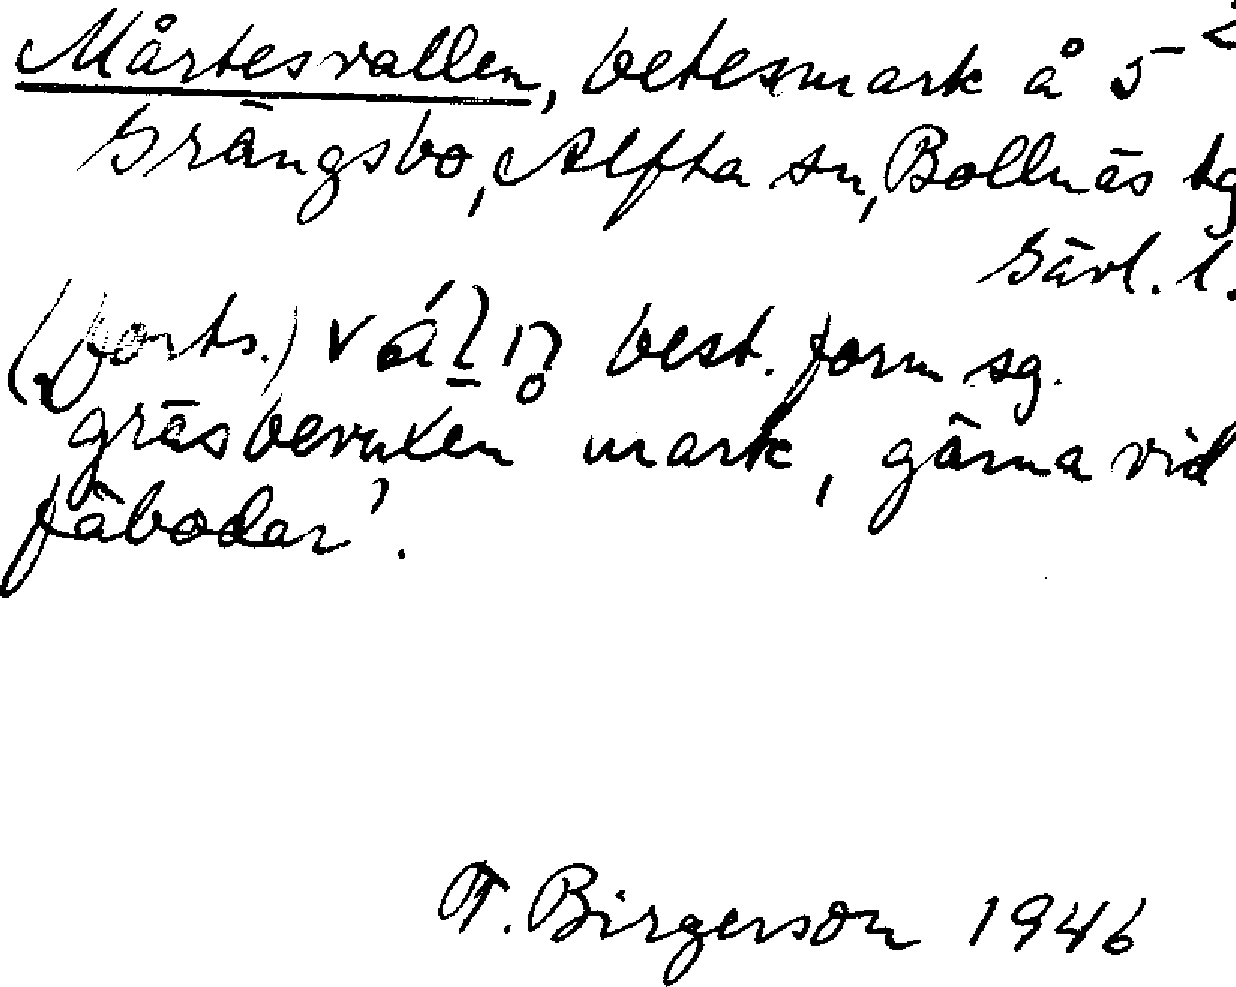 Mårtesvallen, betesmark å 5²
Grängsbo, Alfta sn, Bollnäs tg
Gävl. l.
(forts.) best. form sg.
gräsbevuxen mark, gärna vid
fäbodar'.
T. Birgerson 1946